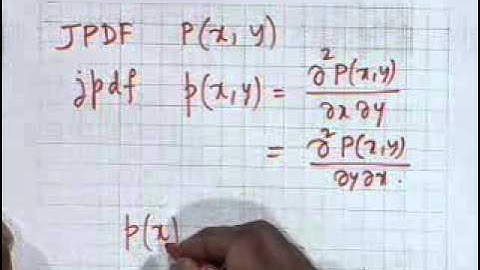 JPDF P(x, y)
jpdf p(x,y) = ∂²P(x,y) / ∂x ∂y
= ∂²P(x,y) / ∂y∂x.
p(x)